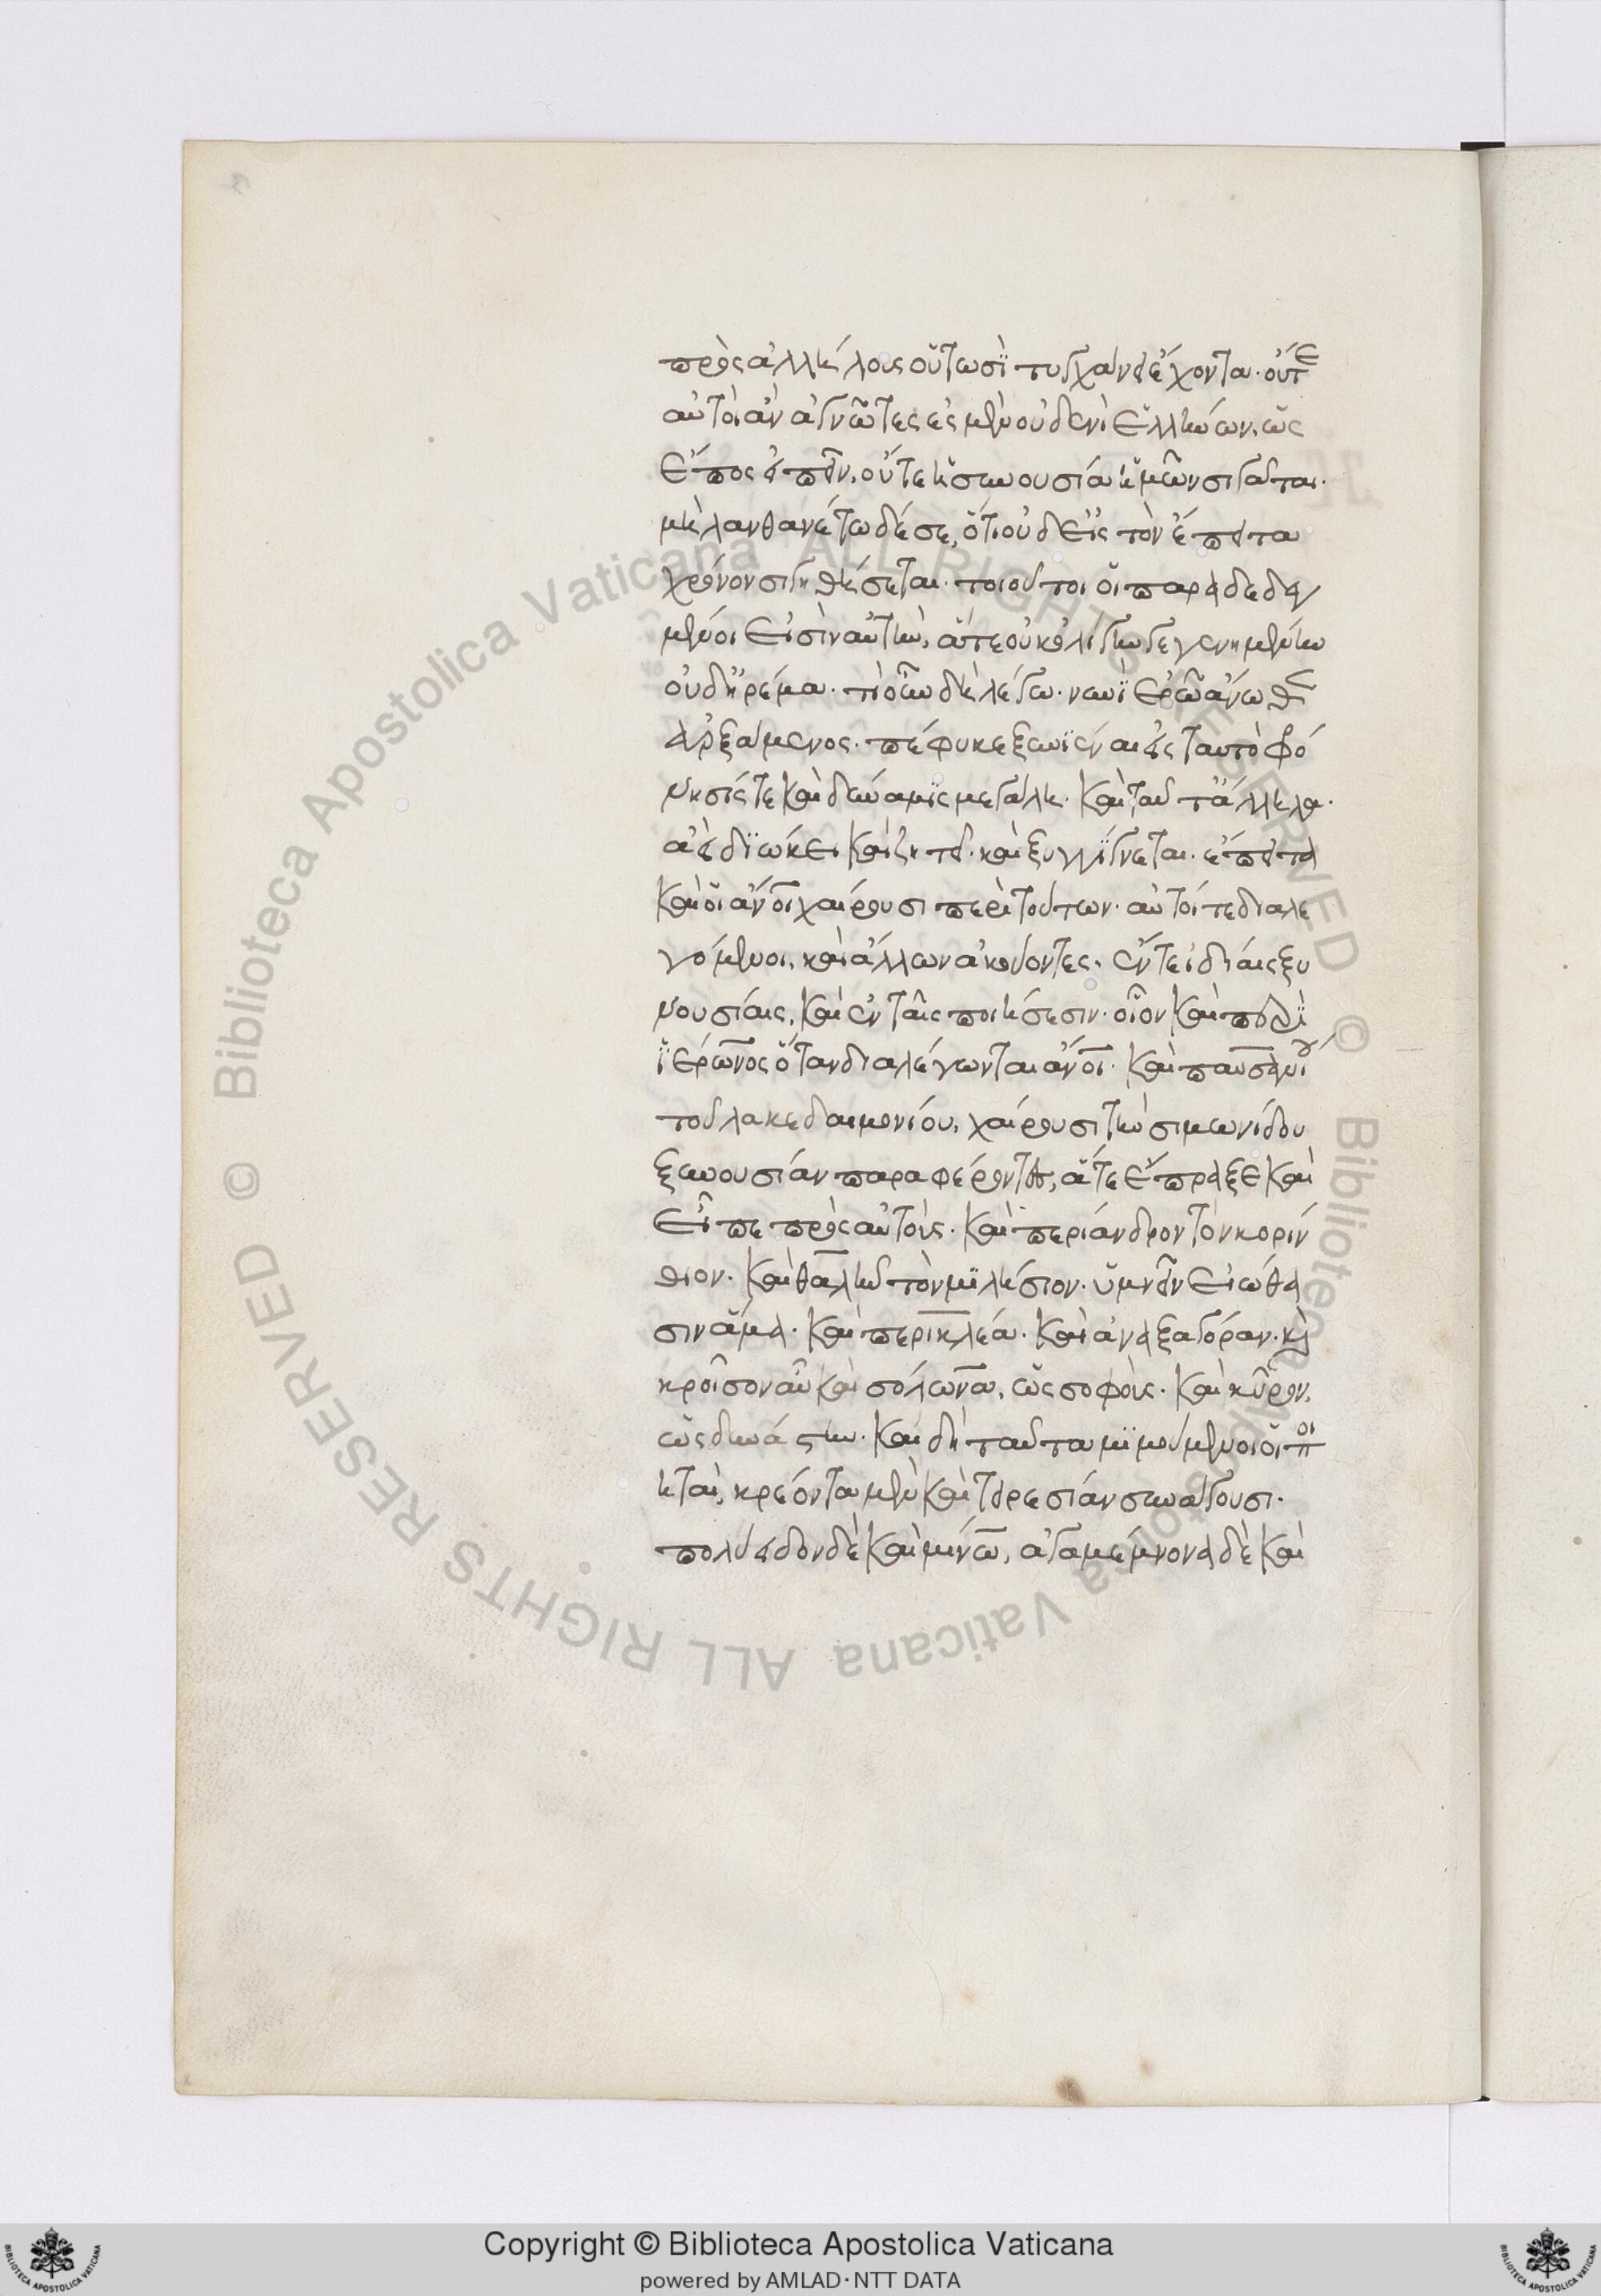 πρὸς ἀλλήλους οὕτωσὶ τυγχάνει ἔχοντα· οὔτε
αὐτοὶ ἂν ἀγνῶτες ἐσμὲν οὐδενὶ ἑλλήνων, ὡς
ἔπος εἰπεῖν, οὔτε ἡ συνουσία ἡμῶν σιγᾶται·
μὴ λανθανέτω δέ σε, ὅτι οὐδ εἰς τὸν ἔπειτα
χρόνον σιγηθήσεται· τοσοῦτοι οἱ παραδεδεγ
μένοι εἰσὶν αὐτὴν, ἅτε οὐκ ὀλίγην γεγενημένην
οὐδ ἠρέμα· τί οὖν δὴ λέγω· νῦν ἐρῶ ἄνωθεν
ἀρξάμενος· πέφυκε ξυνϊέναι εἰς ταυτὸ φρό
νησίς τε καὶ δύναμϊς μεγάλη· καὶ ταῦτ ἄλληλα·
ἀεὶ διώκει καὶ ζητεῖ· καὶ ξυγγίγνεται· ἔπειτα
καὶ οἱ ἄνοι χαίρουσι περὶ τούτων· αὐτοί τε διαλε
γόμενοι, καὶ ἄλλων ἀκούοντες· ἔν τε ἰδίαις ξυ
νουσίαις, καὶ ἐν ταῖς ποιήσεσιν· οἷον καὶ περὶ
ἱέρωνος ὅταν διαλέγωνται ἄνοι· καὶ παυσανίου
τοῦ λακεδαιμονίου, χαίρουσι τὴν σιμωνίδου
ξυνουσίαν παραφέροντες, ἅ τε ἔπραξε καὶ
εἶπε πρὸς αὐτούς· καὶ περίανδρον τὸν κορίν
θιον· καὶ θαλῆν τὸν μιλήσιον· ὑμνεῖν εἰώθα
σιν ἅμα· καὶ περικλέα· καὶ ἀναξαγόραν· καὶ
κροῖσον αὖ καὶ σόλωνα, ὡς σοφοὺς· καὶ κῦρον,
ὡς δυνάστην· καὶ δὴ ταῦτα μιμούμενοι οἱ ποι
ηταὶ, κρέοντα μὲν καὶ τειρεσίαν συνάγουσι·
πολύειδον δὲ καὶ μίνω, ἀγαμέμνονα δὲ καὶ
Copyright © Biblioteca Apostolica Vaticana
powered by AMLAD·NTT DATA
© Biblioteca Apostolica Vaticana ALL RIGHTS RESERVED © Biblioteca Apostolica Vaticana ALL RIGHTS RESERVED